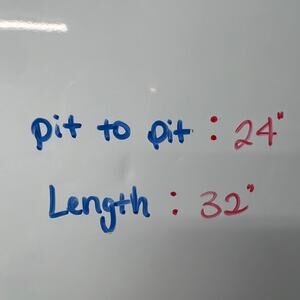 pit to pit : 24"
Length : 32"